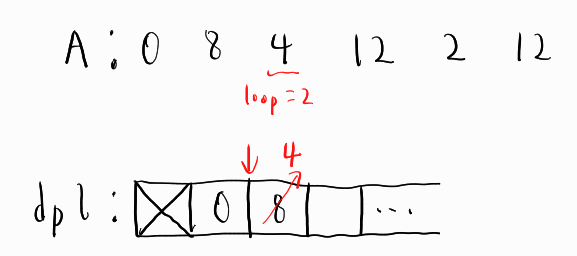 A: 0 8 4 12 2 12
loop=2
4
dpl: 0 8 ...